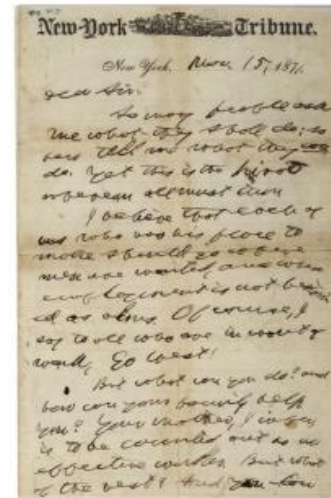 New-York Tribune.
New York, Nov. 15, 187
Dear Sir:
So many people ask
me what they shall do; so
few tell me what they can
do. Yet this is the pivot
wherein all must turn
I believe that each of
us who has his place to
make should go where
men are wanted, and where
employment is not
as alms. Of course, I
say to all who are in want of
work, Go West!
But what can you do? and
how can your family help
you? Your mother, I infer,
is to be counted out as an
effective worker. But what
of the rest? And you - Can